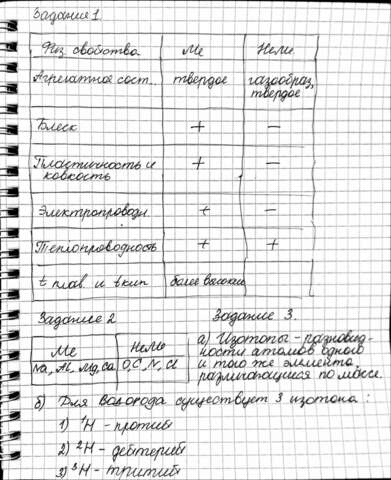 Задание 1
Физ. свойства Ме НеМе
Агрегатное сост. твердое газообраз,
твердое
Блеск + -
Пластичность и + -
ковкость
Электропроводн + -
Теплопроводность + +
t плав. и t кип более высокие
Задание 2 Задание 3.
Ме НеМе
Na, Al, Mg, Ca O, C, N, Cl
а) Изотопы - разновид-
ности атомов одного
и того же элемента
различающиеся по массе.
б) Для водорода существует 3 изотопа:
1) ¹H - протий
2) ²H - дейтерий
3) ³H - тритий